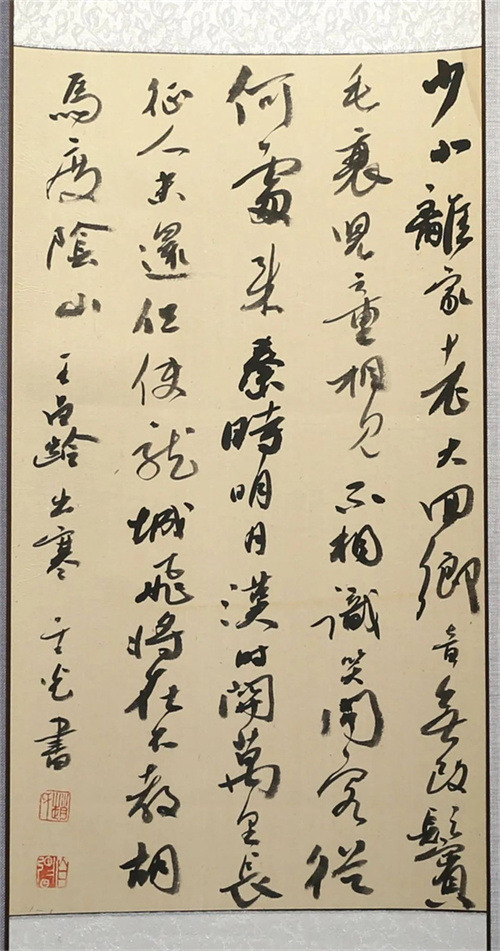 少小離家老大回鄉音無改鬢
毛衰兒童相見不相識笑問客從
何處來秦時明月漢時關萬里長
征人未還但使龍城飛將在不教胡
馬度陰山 王昌齡出塞 書